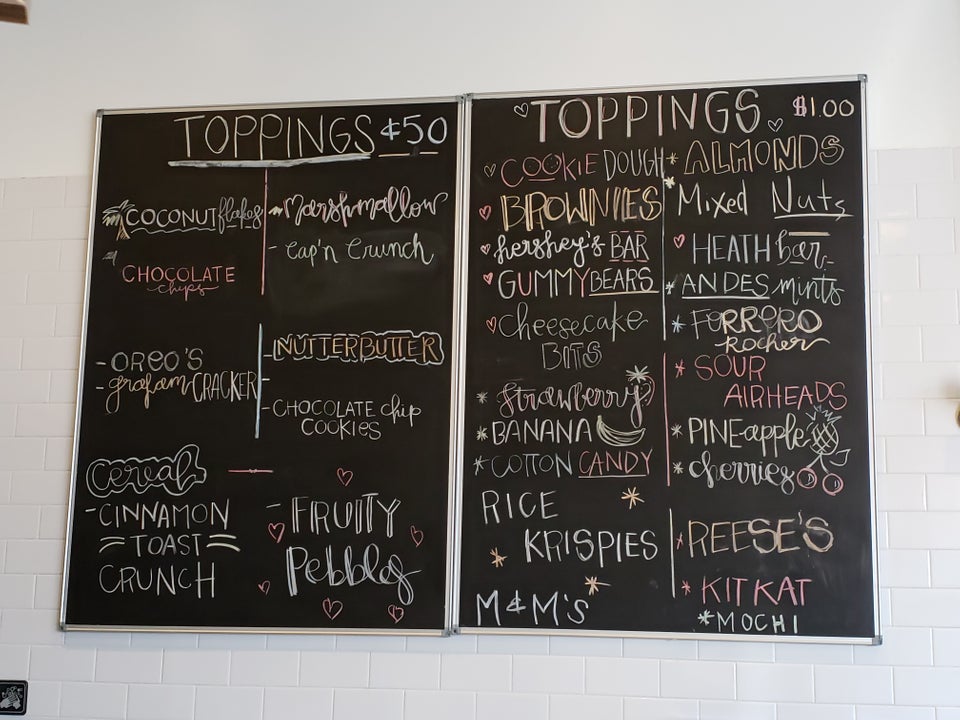 TOPPINGS ¢50
COCONUT flakes
CHOCOLATE
chips
- OREO'S
- graham CRACKER
- Marshmallow
- Cap'n Crunch
- NUTTERBUTTER
- CHOCOLATE chip
COOKIES
Cereal
- CINNAMON
TOAST
CRUNCH
- FRUITY
Pebbles
TOPPINGS $1.00
COOKIE DOUGH
BROWNIES
hershey's BAR
GUMMY BEARS
cheesecake
BITS
* Strawberry
* BANANA
* COTTON CANDY
RICE
KRISPIES
M&M'S
* ALMONDS
Mixed Nuts
HEATH bar
* ANDES mints
* FORRERO
Rocher
* SOUR
AIRHEADS
* PINE-apple
* cherries
* REESE'S
* KIT KAT
* MOCHI